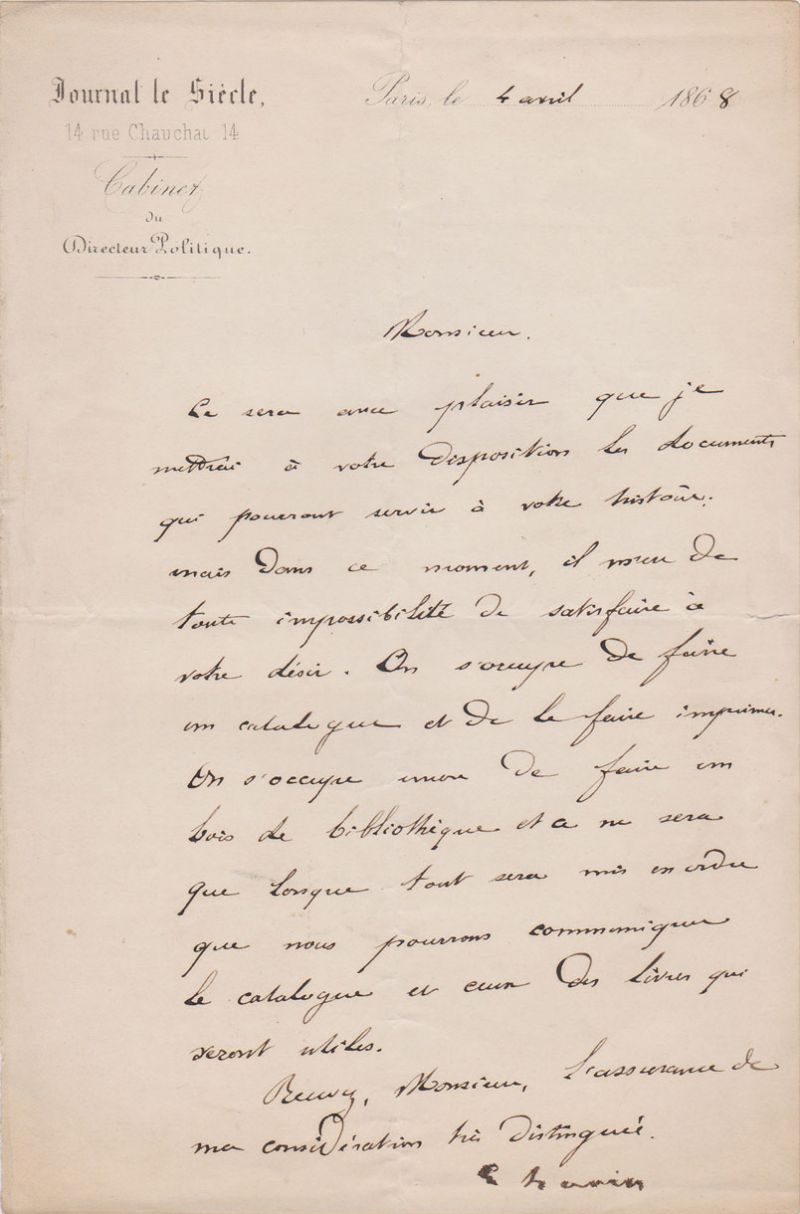 Journal le Siècle,
14 rue Chauchat 14
Cabinet
du
Directeur Politique.
Paris, le 4 avril 1868
Monsieur.
Ce sera avec plaisir que je
mettrai à votre disposition les documents
qui pourront servir à votre histoire.
mais dans ce moment, il m'est de
toute impossibilité de satisfaire à
votre désir. On s'occupe de faire
un catalogue et de le faire imprimer.
On s'occupe encore de faire un
bois de bibliothèque et ce ne sera
que lorsque tout sera mis en ordre
que nous pourrons communiquer
le catalogue et ceux des livres qui
seront utiles.
Recevez, Monsieur, l'assurance de
ma considération très distinguée.
L havin